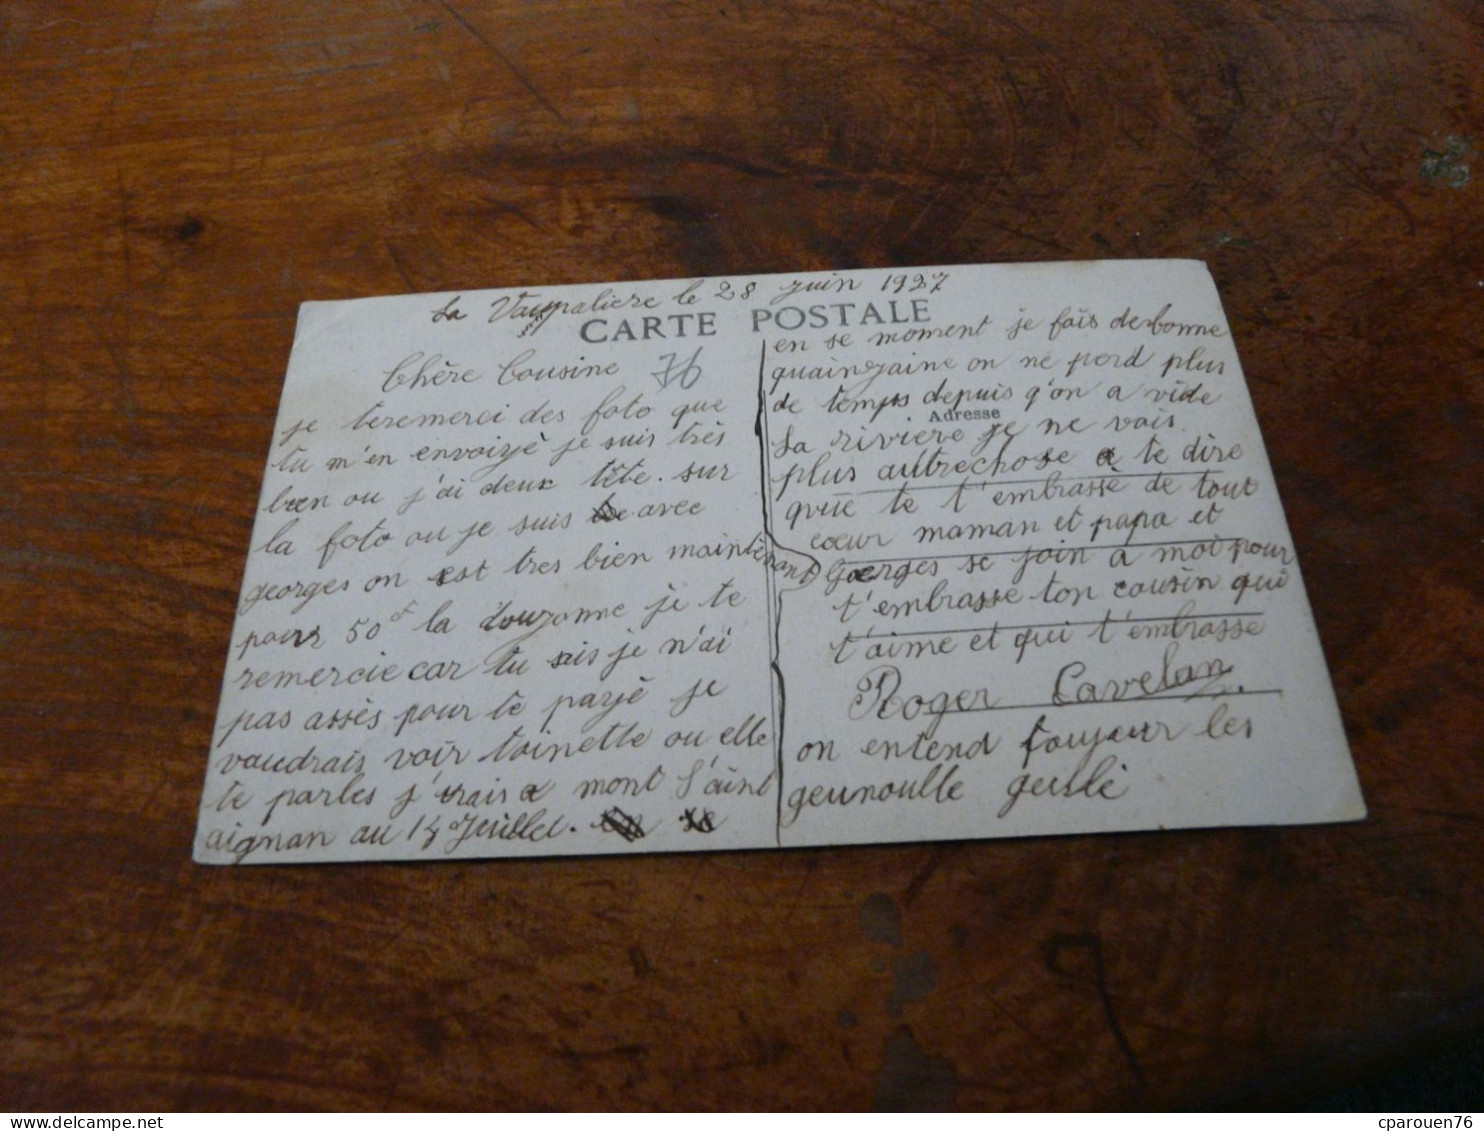 La Vaupaliere le 28 juin 1927
CARTE POSTALE
Chère Cousine 76
je teremerci des foto que
tu m'en envoiyè je suis très
bien ou j'ai deux tête. sur
la foto ou je suis avec
georges on est tres bien maintenant
pour 50f la douzonne je te
remercie car tu sais je n'ai
pas assès pour te payè je
vaudrais voir toinette ou elle
te parles j'irais a mont S'aint
aignan au 14 Juillet.
en se moment je fais de bonne
quainzaine on ne perd plus
de temps depuis q'on a vide
Adresse
la rivière je ne vais
plus autrechose a te dire
que te t'embrassè de tout
cœur maman et papa et
Goerges se join a moi pour
t'embrasse ton cousin qui
t'aime et qui t'embrasse
Roger Cavelan
on entend toujour les
geunoulle geulè
cparouen76